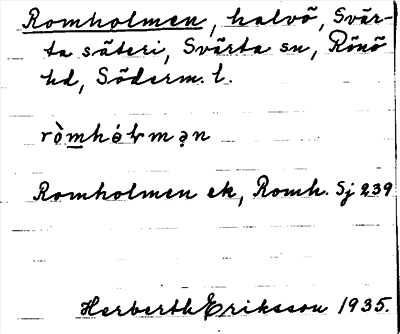 Romholmen, halvö, Svär-
ta säteri, Svärta sn, Rönö
hd, Söderm. l.
ròmhól̵mən
Romholmen ek, Romh. Sj 239
Herberth Eriksson 1935.